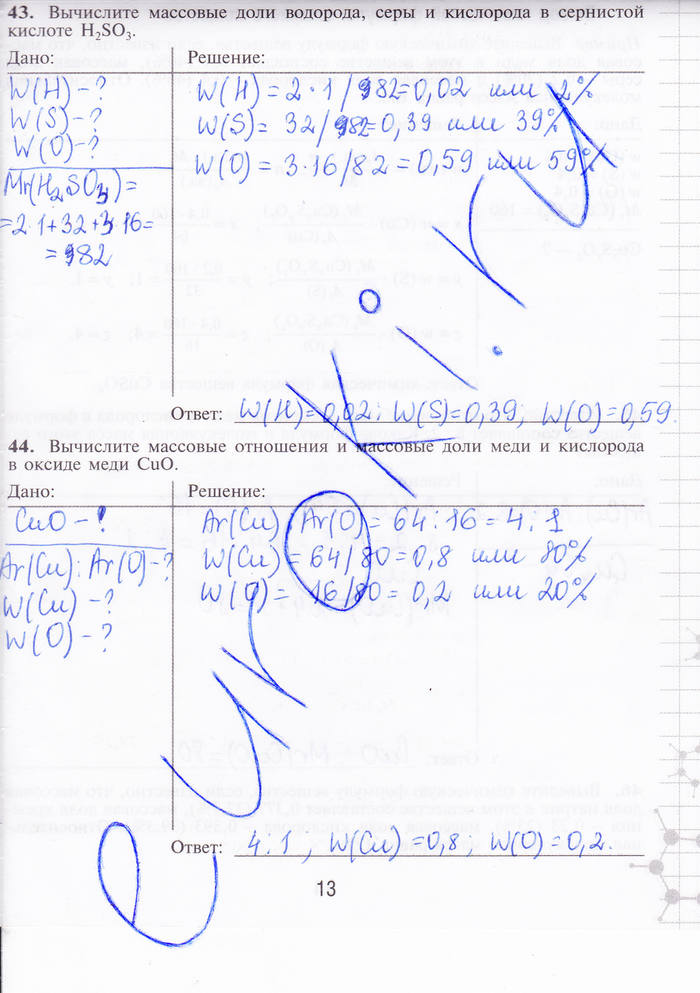 43. Вычислите массовые доли водорода, серы и кислорода в сернистой
кислоте H₂SO₃.
Дано:
Решение:
W(H) - ?
W(S) - ?
W(O) - ?
Mr(H₂SO₃) =
= 2·1+32+3·16=
= 82
W(H) = 2·1/82=0,02 или 2%
W(S) = 32/82=0,39 или 39%
W(O) = 3·16/82=0,59 или 59%
Ответ: W(H)=0,02; W(S)=0,39; W(O)=0,59.
44. Вычислите массовые отношения и массовые доли меди и кислорода
в оксиде меди CuO.
Дано:
Решение:
CuO - ?
Ar(Cu) : Ar(O) - ?
W(Cu) - ?
W(O) - ?
Ar(Cu) : Ar(O) = 64 : 16 = 4 : 1
W(Cu) = 64/80 = 0,8 или 80%
W(O) = 16/80 = 0,2 или 20%
Ответ: 4:1, W(Cu)=0,8; W(O)=0,2.
13